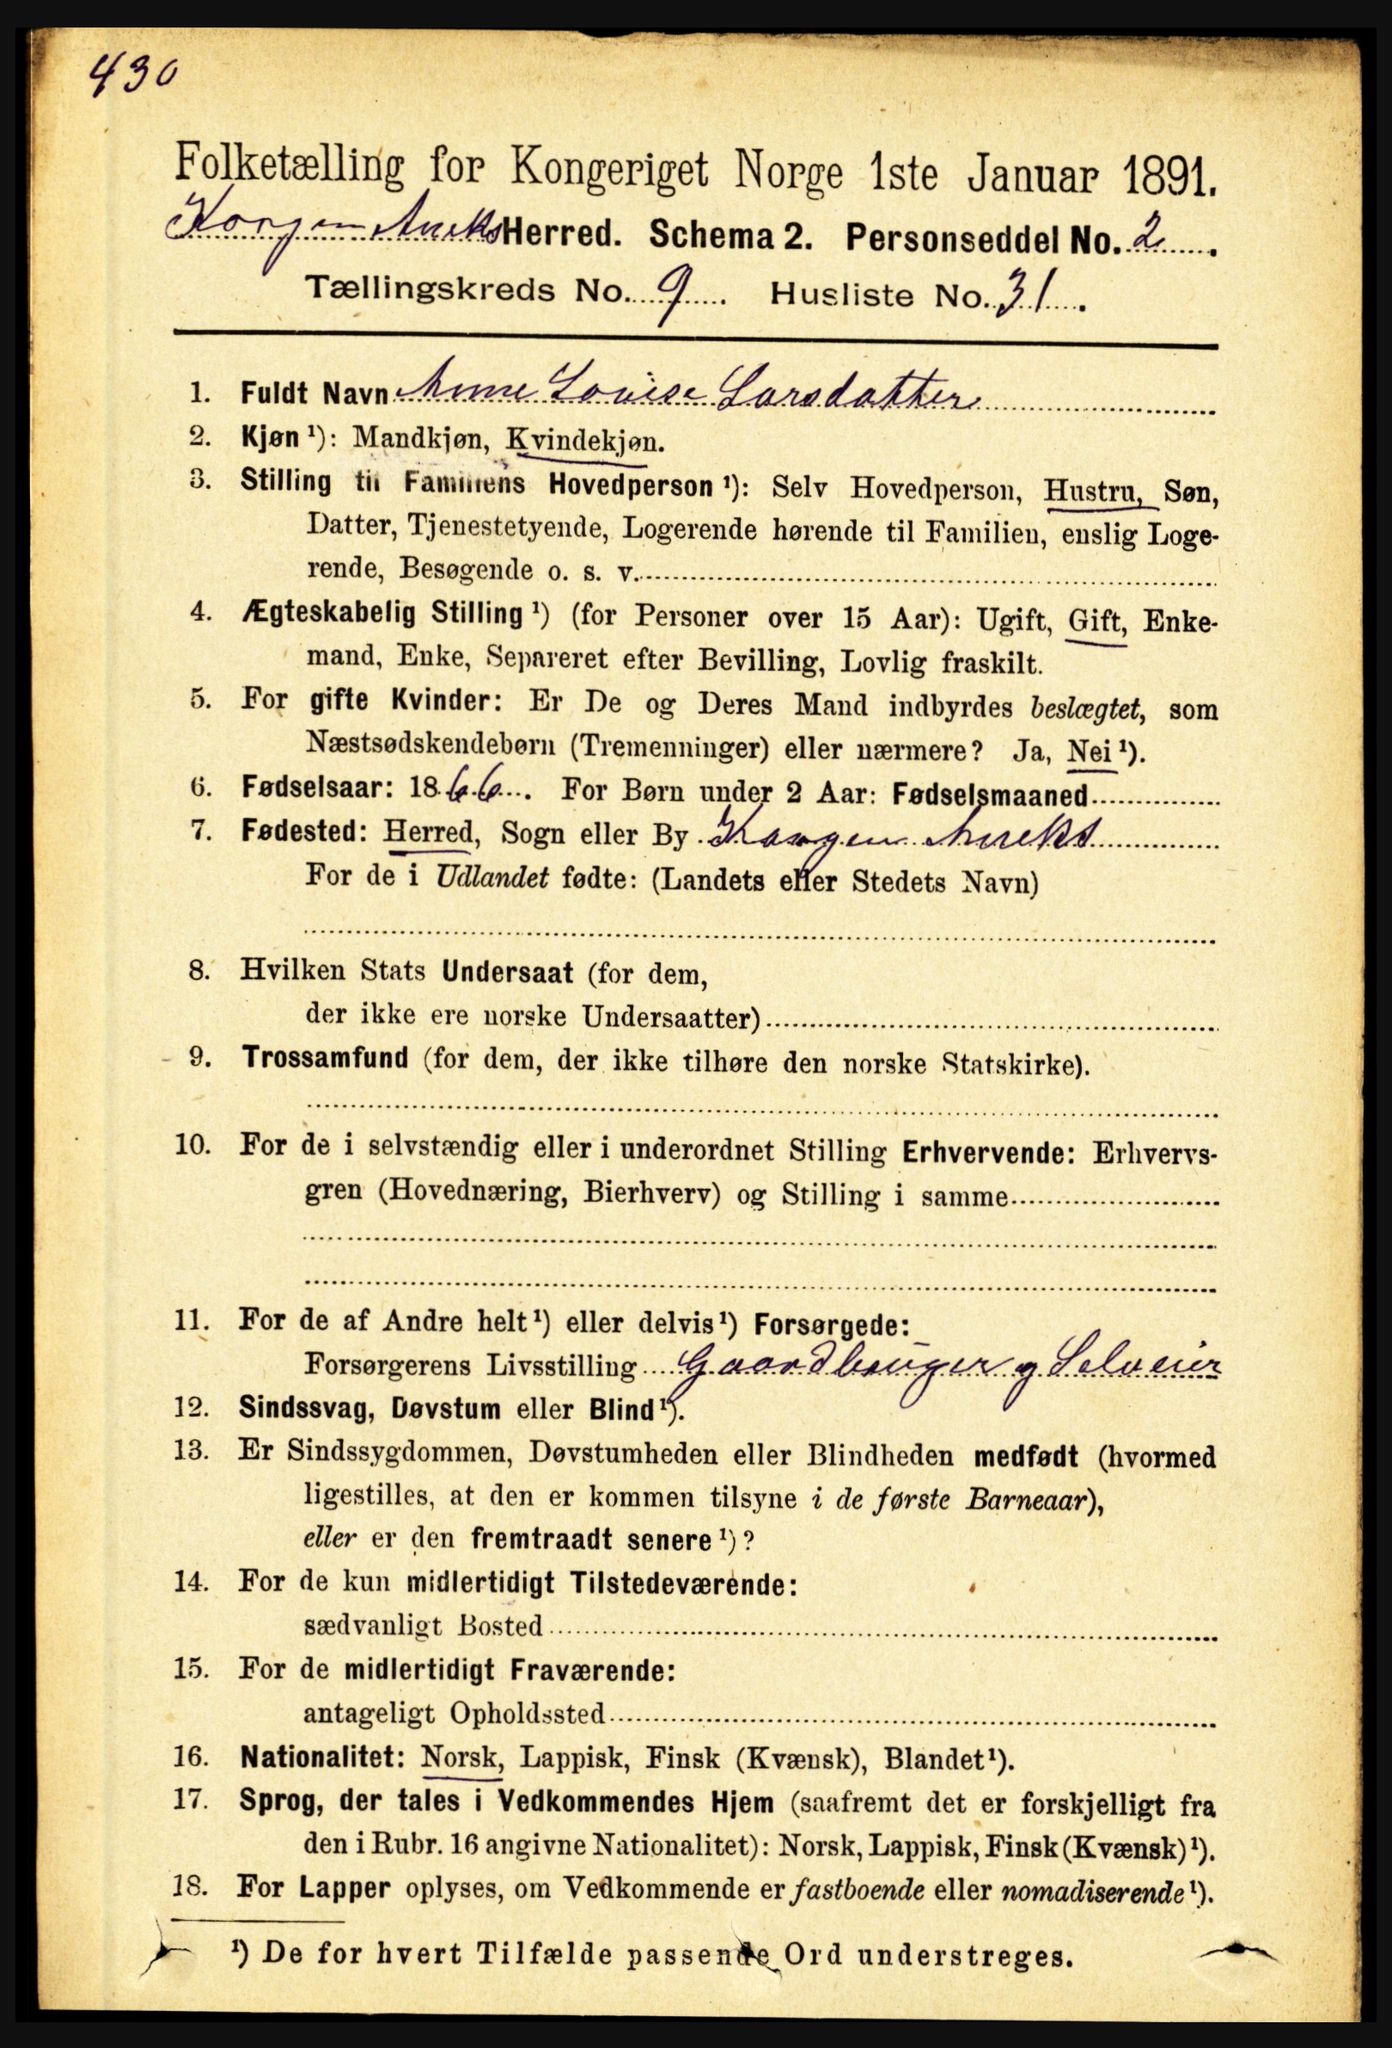 430
Folketælling for Kongeriget Norge 1ste Januar 1891.
Korgen Aneks Herred. Schema 2. Personseddel No. 2.
Tællingskreds No. 9. Husliste No. 31.
1. Fuldt Navn Anne Lovise Larsdatter
2. Kjøn ¹): Mandkjøn, Kvindekjøn.
3. Stilling til Familiens Hovedperson ¹): Selv Hovedperson, Hustru, Søn,
Datter, Tjenestetyende, Logerende hørende til Familien, enslig Loge-
rende, Besøgende o. s. v.
4. Ægteskabelig Stilling ¹) (for Personer over 15 Aar): Ugift, Gift, Enke-
mand, Enke, Separeret efter Bevilling, Lovlig fraskilt.
5. For gifte Kvinder: Er De og Deres Mand indbyrdes beslægtet, som
Næstsødskendebørn (Tremenninger) eller nærmere? Ja, Nei ¹).
6. Fødselsaar: 1866. For Børn under 2 Aar: Fødselsmaaned
7. Fødested: Herred, Sogn eller By Korgen Aneks
For de i Udlandet fødte: (Landets eller Stedets Navn)
8. Hvilken Stats Undersaat (for dem,
der ikke ere norske Undersaatter)
9. Trossamfund (for dem, der ikke tilhøre den norske Statskirke).
10. For de i selvstændig eller i underordnet Stilling Erhvervende: Erhvervs-
gren (Hovednæring, Bierhverv) og Stilling i samme
11. For de af Andre helt ¹) eller delvis ¹) Forsørgede:
Forsørgerens Livsstilling Gaardbruger og Selveier
12. Sindssvag, Døvstum eller Blind ¹).
13. Er Sindssygdommen, Døvstumheden eller Blindheden medfødt (hvormed
ligestilles, at den er kommen tilsyne i de første Barneaar),
eller er den fremtraadt senere ¹)?
14. For de kun midlertidigt Tilstedeværende:
sædvanligt Bosted
15. For de midlertidigt Fraværende:
antageligt Opholdssted
16. Nationalitet: Norsk, Lappisk, Finsk (Kvænsk), Blandet ¹).
17. Sprog, der tales i Vedkommendes Hjem (saafremt det er forskjelligt fra
den i Rubr. 16 angivne Nationalitet): Norsk, Lappisk, Finsk (Kvænsk) ¹).
18. For Lapper oplyses, om Vedkommende er fastboende eller nomadiserende ¹).
¹) De for hvert Tilfælde passende Ord understreges.